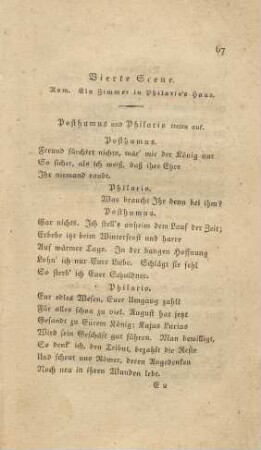 67
Vierte Scene.
Rom. Ein Zimmer in Philario's Haus.
Posthumus und Philario treten auf.
Posthumus.
Freund fürchtet nichts, wär' mir der König nur
So sicher, als ich weiß, daß ihre Ehre
Ihr niemand raubt.
Philario.
Was braucht Ihr denn bei ihm?
Posthumus.
Gar nichts. Ich stell's anheim dem Lauf der Zeit;
Erbebe itzt beim Winterfrost und harre
Auf wärmre Tage. In der bangen Hoffnung
Lohn' ich nur Eure Liebe. Schlägt sie fehl
So sterb' ich Eurer Schuldner.
Philario.
Eur edles Wesen, Euer Umgang zahlt
Für alles schon zu viel. August hat jetzt
Gesandt zu Eurem König; Kajus Lucius
Wird sein Geschäft gut führen. Man bewilligt,
So denk' ich, den Tribut, bezahlt die Reste
Und scheut uns Römer, deren Angedenken
Noch neu in ihren Wunden lebt.
E 2